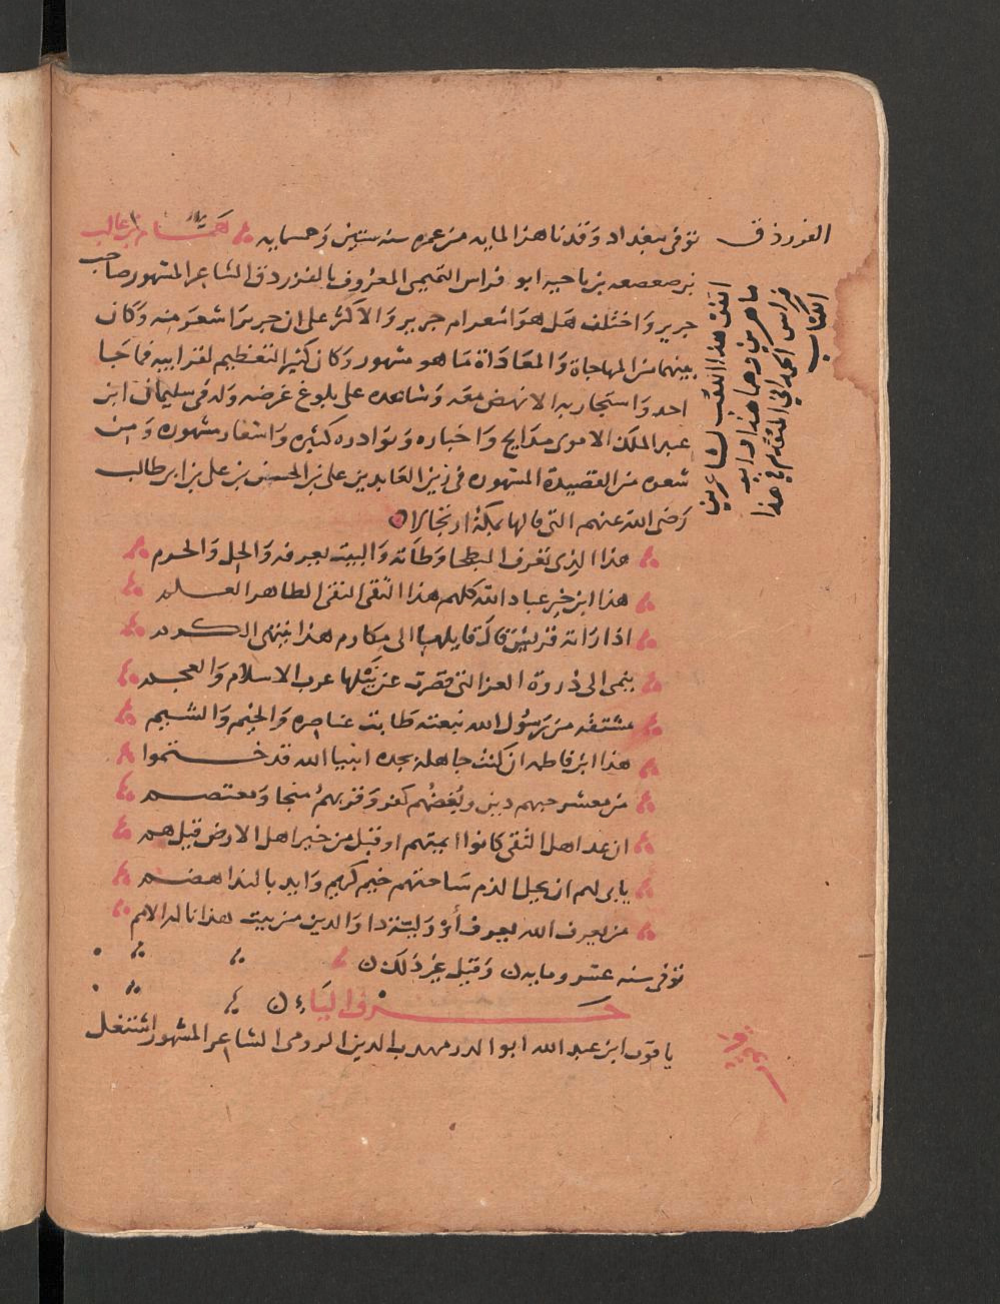 توفى ببغداد وقد ناهز الماية من عمره سنه ستين وخمسمايه همام بن غالب
بن صعصعه بن ناجيه ابو فراس التميمي المعروف بالفرزدق الشاعر المشهور صاحب
جرير واختلف هل هو اشعر ام جرير والاكثر على ان جريرا اشعر منه وكان
بينهما من المهاجاة والمعاداة ما هو مشهور وكان كثير التعظيم لقبر ابيه فما جا
احد واستجار به الا نهض معه وساعده على بلوغ غرضه وله في سليمان ابن
عبد الملك الاموي مدايح واخباره ونوادره كثيره واشعار مشهوره ومن
شعره من القصيدة المشهوره في زين العابدين على بن الحسن بن على بن ابى طالب
رضى الله عنهم التي قالها بمكة ارتجالا
هذا الذى تعرف البطحا وطاته والبيت يعرفه والحل والحرم
هذا ابن خير عباد الله كلهم هذا التقى النقى الطاهر العلم
اذا راته قريش قال قايلها الى مكارم هذا ينتهى الكرم
ينمى الى ذروة العز التى قصرت عن نيلها عرب الاسلام والعجم
مشتقة من رسول الله نبعته طابت عناصره والخيم والشيم
هذا ابن فاطمه ان كنت جاهله بجده انبيا الله قد ختموا
من معشر حبهم دين وبغضهم كفر وقربهم منجا ومعتصم
ان عد اهل التقى كانوا ايمتهم او قيل من خير اهل الارض قيل هم
يابى لهم ان يحل الذم ساحتهم خيم كريم وايد بالندا هضم
من يعرف الله يعرف أو ولية ذا والدين من بيت هذا ناله الامم
توفى سنه عشر ومايه وقيل غير ذلك
حرف الياء
ياقوت ابن عبد الله ابو الدر مهذب الدين الرومى الشاعر المشهور اشتغل
الفرزدق
اتفق هذا اللقب لشاعرين
ماهرين وهما هذا وابو
فراس الحمداني المتقدم في هذا
الكتاب